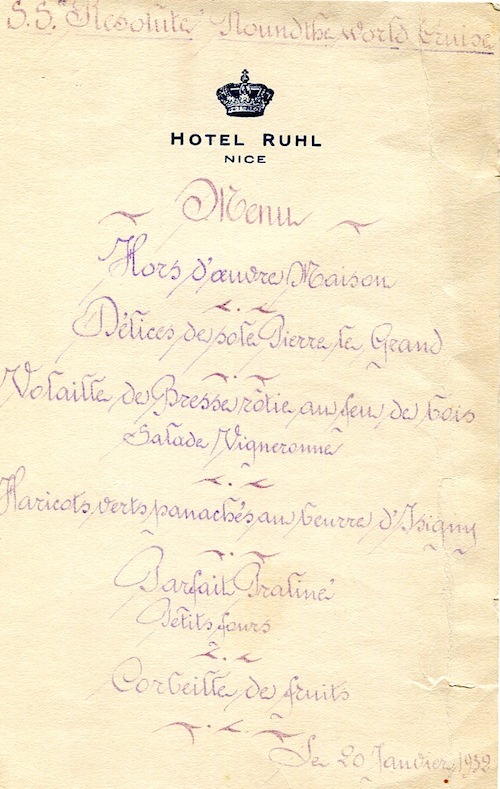 S.S. "Resolute" Round the World Cruise
HOTEL RUHL
NICE
Menu
Hors d'œuvre Maison
Délices de sole Pierre le Grand
Volaille de Bresse rôtie au feu de bois
Salade Vigneronne
Haricots verts panachés au beurre d'Isigny
Parfait Praliné
Petits fours
Corbeille de fruits
Le 20 Janvier 1932